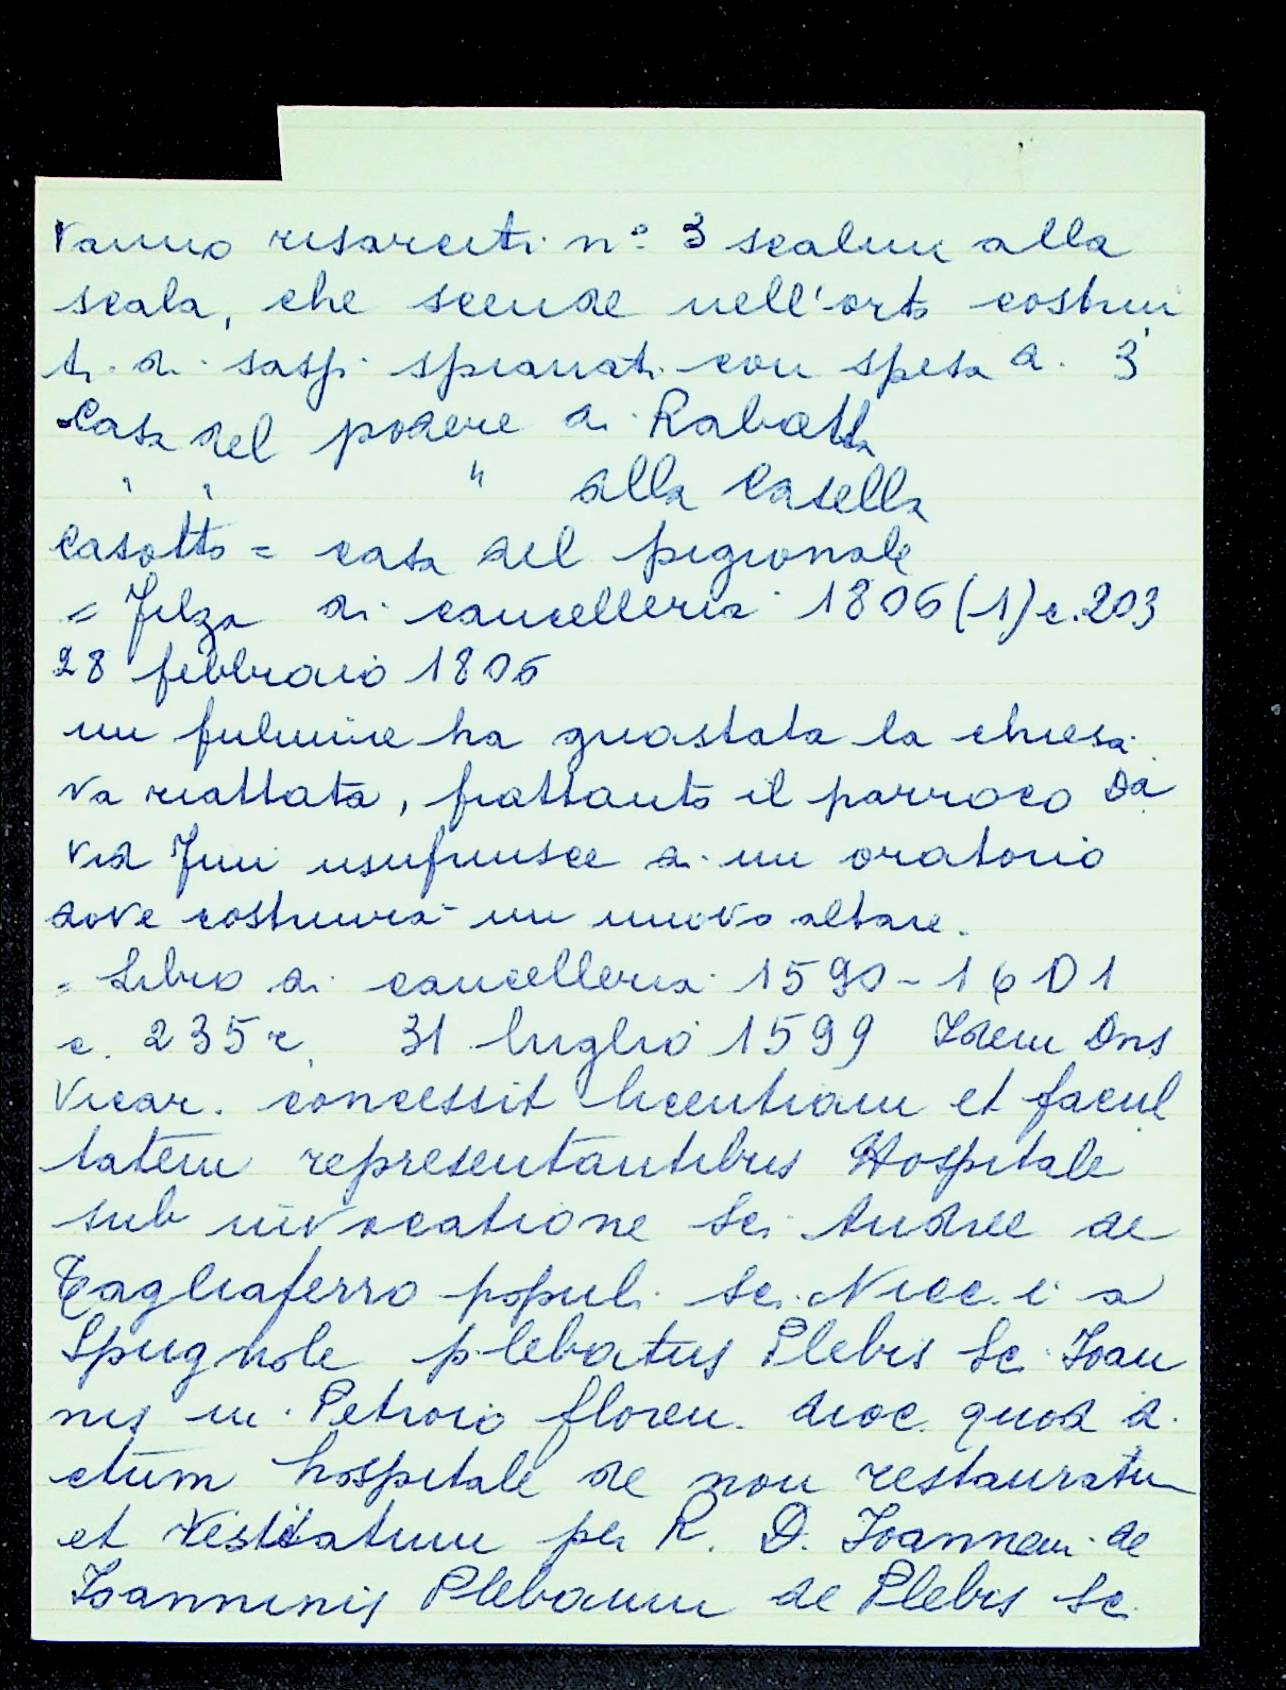 Vanno risarciti n° 3 scalini alla
scala, che scende nell'orto costrui
ti di sassi spianati con spesa d. 3
Casa del podere di Rabatta
" " " alla Casella
Casotto = casa del pigionale
= Filza di cancelleria 1806 (1) c. 203
28 febbraio 1806
un fulmine ha guastata la chiesa.
Va riattata, frattanto il parroco Da
vid Juni usufruisce di un oratorio
dove costruirà un nuovo altare.
= Libro di cancelleria 1590-1601
c. 235 r. 31 luglio 1599 Idem Dns
Vicar. concessit licentiam et facul
tatem representantibus Hospitale
sub invocatione Sci Andree de
Tagliaferro populi Sci Nicc.i a
Spugnole plebatus Plebis Sc. Ioan
nis in Petroio floren. dioc. quod d.
ctum hospitale de non restauratu
et visitatum per R. D. Ioannem de
Ioanninis Plebanum de Plebis Sc.